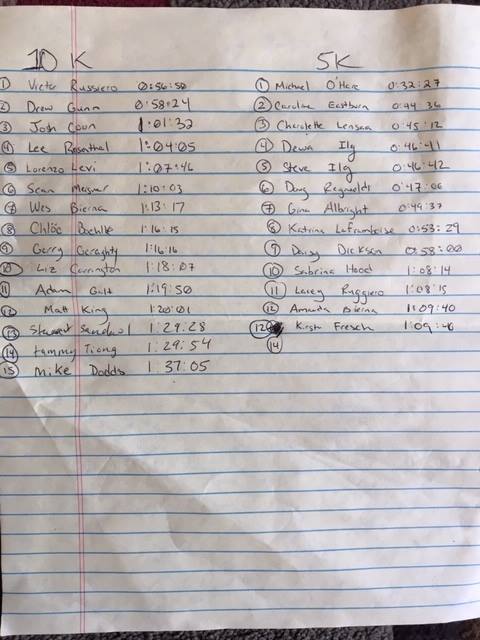 10 K
1 Victor Russiero 0:56:50
2 Drew Gunn 0:58:24
3 Josh Coun 1:01:32
4 Lee Rosenthal 1:04:05
5 Lorenzo Levi 1:07:46
6 Sean 1:10:03
7 Wes Bierna 1:13:17
8 Chlöe 1:16:15
9 Gerry Geraghty 1:16:16
10 Liz Carrington 1:18:07
11 Adam Galt 1:19:50
12 Matt King 1:20:01
13 Stewart 1:29:28
14 Tammy Tiong 1:29:54
15 Mike Dodds 1:37:05
5K
1 Michael O'Hare 0:32:27
2 Caroline Eastburn 0:44:36
3 Charolette 0:45:12
4 Dewa Ilg 0:46:41
5 Steve Ilg 0:46:42
6 Doug Reynolds 0:47:06
7 Gina Albright 0:49:37
8 Katrina Laframboise 0:53:29
9 Daisy Dickson 0:58:00
10 Sabrina Hood 1:08:14
11 Lacey Ruggiero 1:08:15
12 Amanda Bierna 1:09:40
12 Kirstn Fresch 1:09:46
14